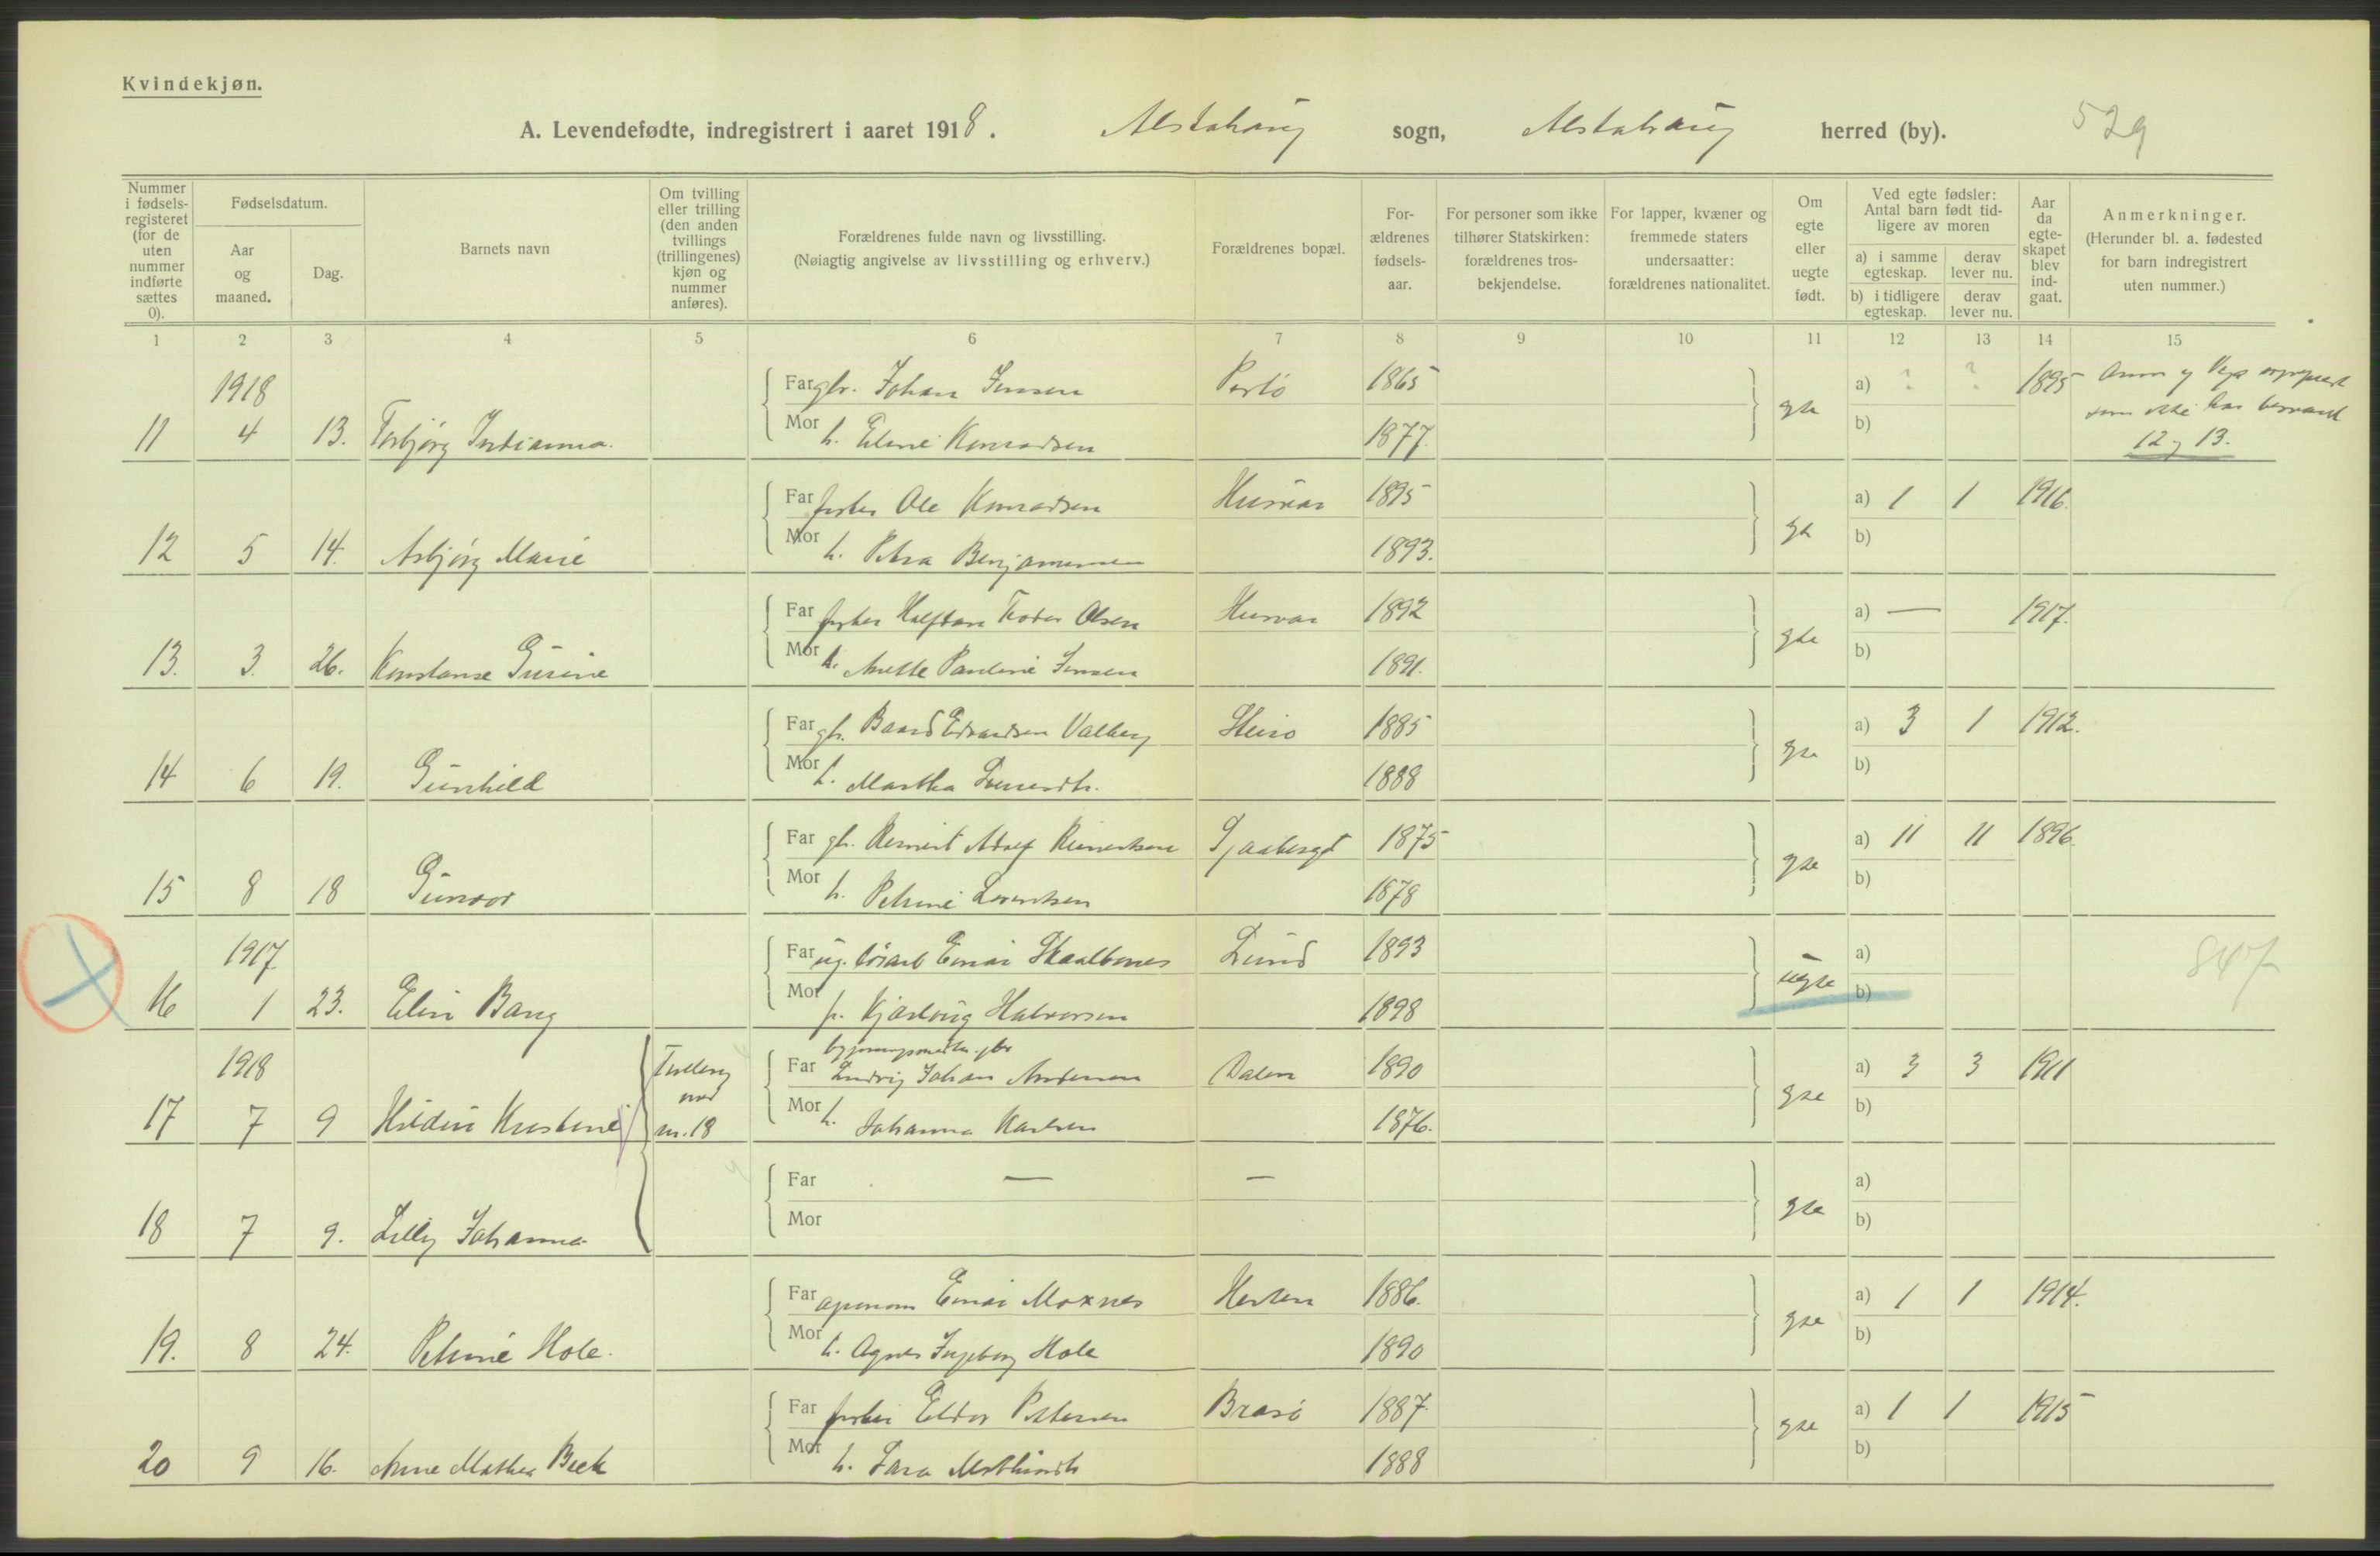 Kvindekjøn.
A. Levendefødte, indregistrert i aaret 1918. Alstahaug sogn, Alstahaug herred (by). 529
Nummer i fødsels-registeret (for de uten nummer indførte sættes 0).
Fødselsdatum.
Aar og maaned.
Dag.
Barnets navn
Om tvilling eller trilling (den anden tvillings (trillingenes) kjøn og nummer anføres).
Forældrenes fulde navn og livsstilling.
(Nøiagtig angivelse av livsstilling og erhverv.)
Forældrenes bopæl.
For-ældrenes fødsels-aar.
For personer som ikke tilhører Statskirken: forældrenes tros-bekjendelse.
For lapper, kvæner og fremmede staters undersaatter: forældrenes nationalitet.
Om egte eller uegte født.
Ved egte fødsler: Antal barn født tid-ligere av moren
a) i samme egteskap.
derav lever nu.
b) i tidligere egteskap.
derav lever nu.
Aar da egte-skapet blev ind-gaat.
Anmerkninger.
(Herunder bl. a. fødested for barn indregistrert uten nummer.)
1 2 3 4 5 6 7 8 9 10 11 12 13 14 15
1918
Far gbr. Johan Jensen 1865 a) ? ? 1895
11 4 13. Torbjørg
Mor h. Konradsen 1877. gte b) 12 og 13.
Far fisker Ole Konradsen Husvær 1895 a) 1 1 1916.
12 5 14. Asbjørg Marie
Mor h. Petra Benjaminsen 1893. b)
Far fisker Halfdan Olsen Husvær 1892 a) — 1917.
13. 3. 26. Konstanse
Mor h. Anette Pauline Jensen 1891. gte b)
Far gbr. Baard Edvardsen Valberg 1885 a) 3 1 1912.
14 6 19. Gunhild
Mor h. Martha 1888 gte b)
Far gbr. Reinert Adolf Reinertsen 1875 a) 11 11 1896.
15 8 18 Gunvor
Mor h. Petrine Lorentsen 1878 gte b)
1917
Far ug. Einar Skaalbones Lund 1893 a) 847
16 1 23. Elin Bang
Mor p. Halvorsen 1898 uegte b)
1918
Tvilling med nr. 18
Far Ludvig Johan Andersen Dalen 1890 a) 3 3 1911
17 7 9
Mor h. Johanna Karlsen 1876. gte b)
Far — — a)
18 7 9. Lilly Johanna
Mor gte b)
Far Einar Moxnes 1886. a) 1 1 1914.
19. 8 24. Petrine Hole.
Mor h. Agnes Ingeborg Hole 1890 gte b)
Far fisker Eldor Pettersen Brasø 1887. a) 1 1 1915
20 9 16. Anne Mathea Beck
Mor h. 1888 gte b)